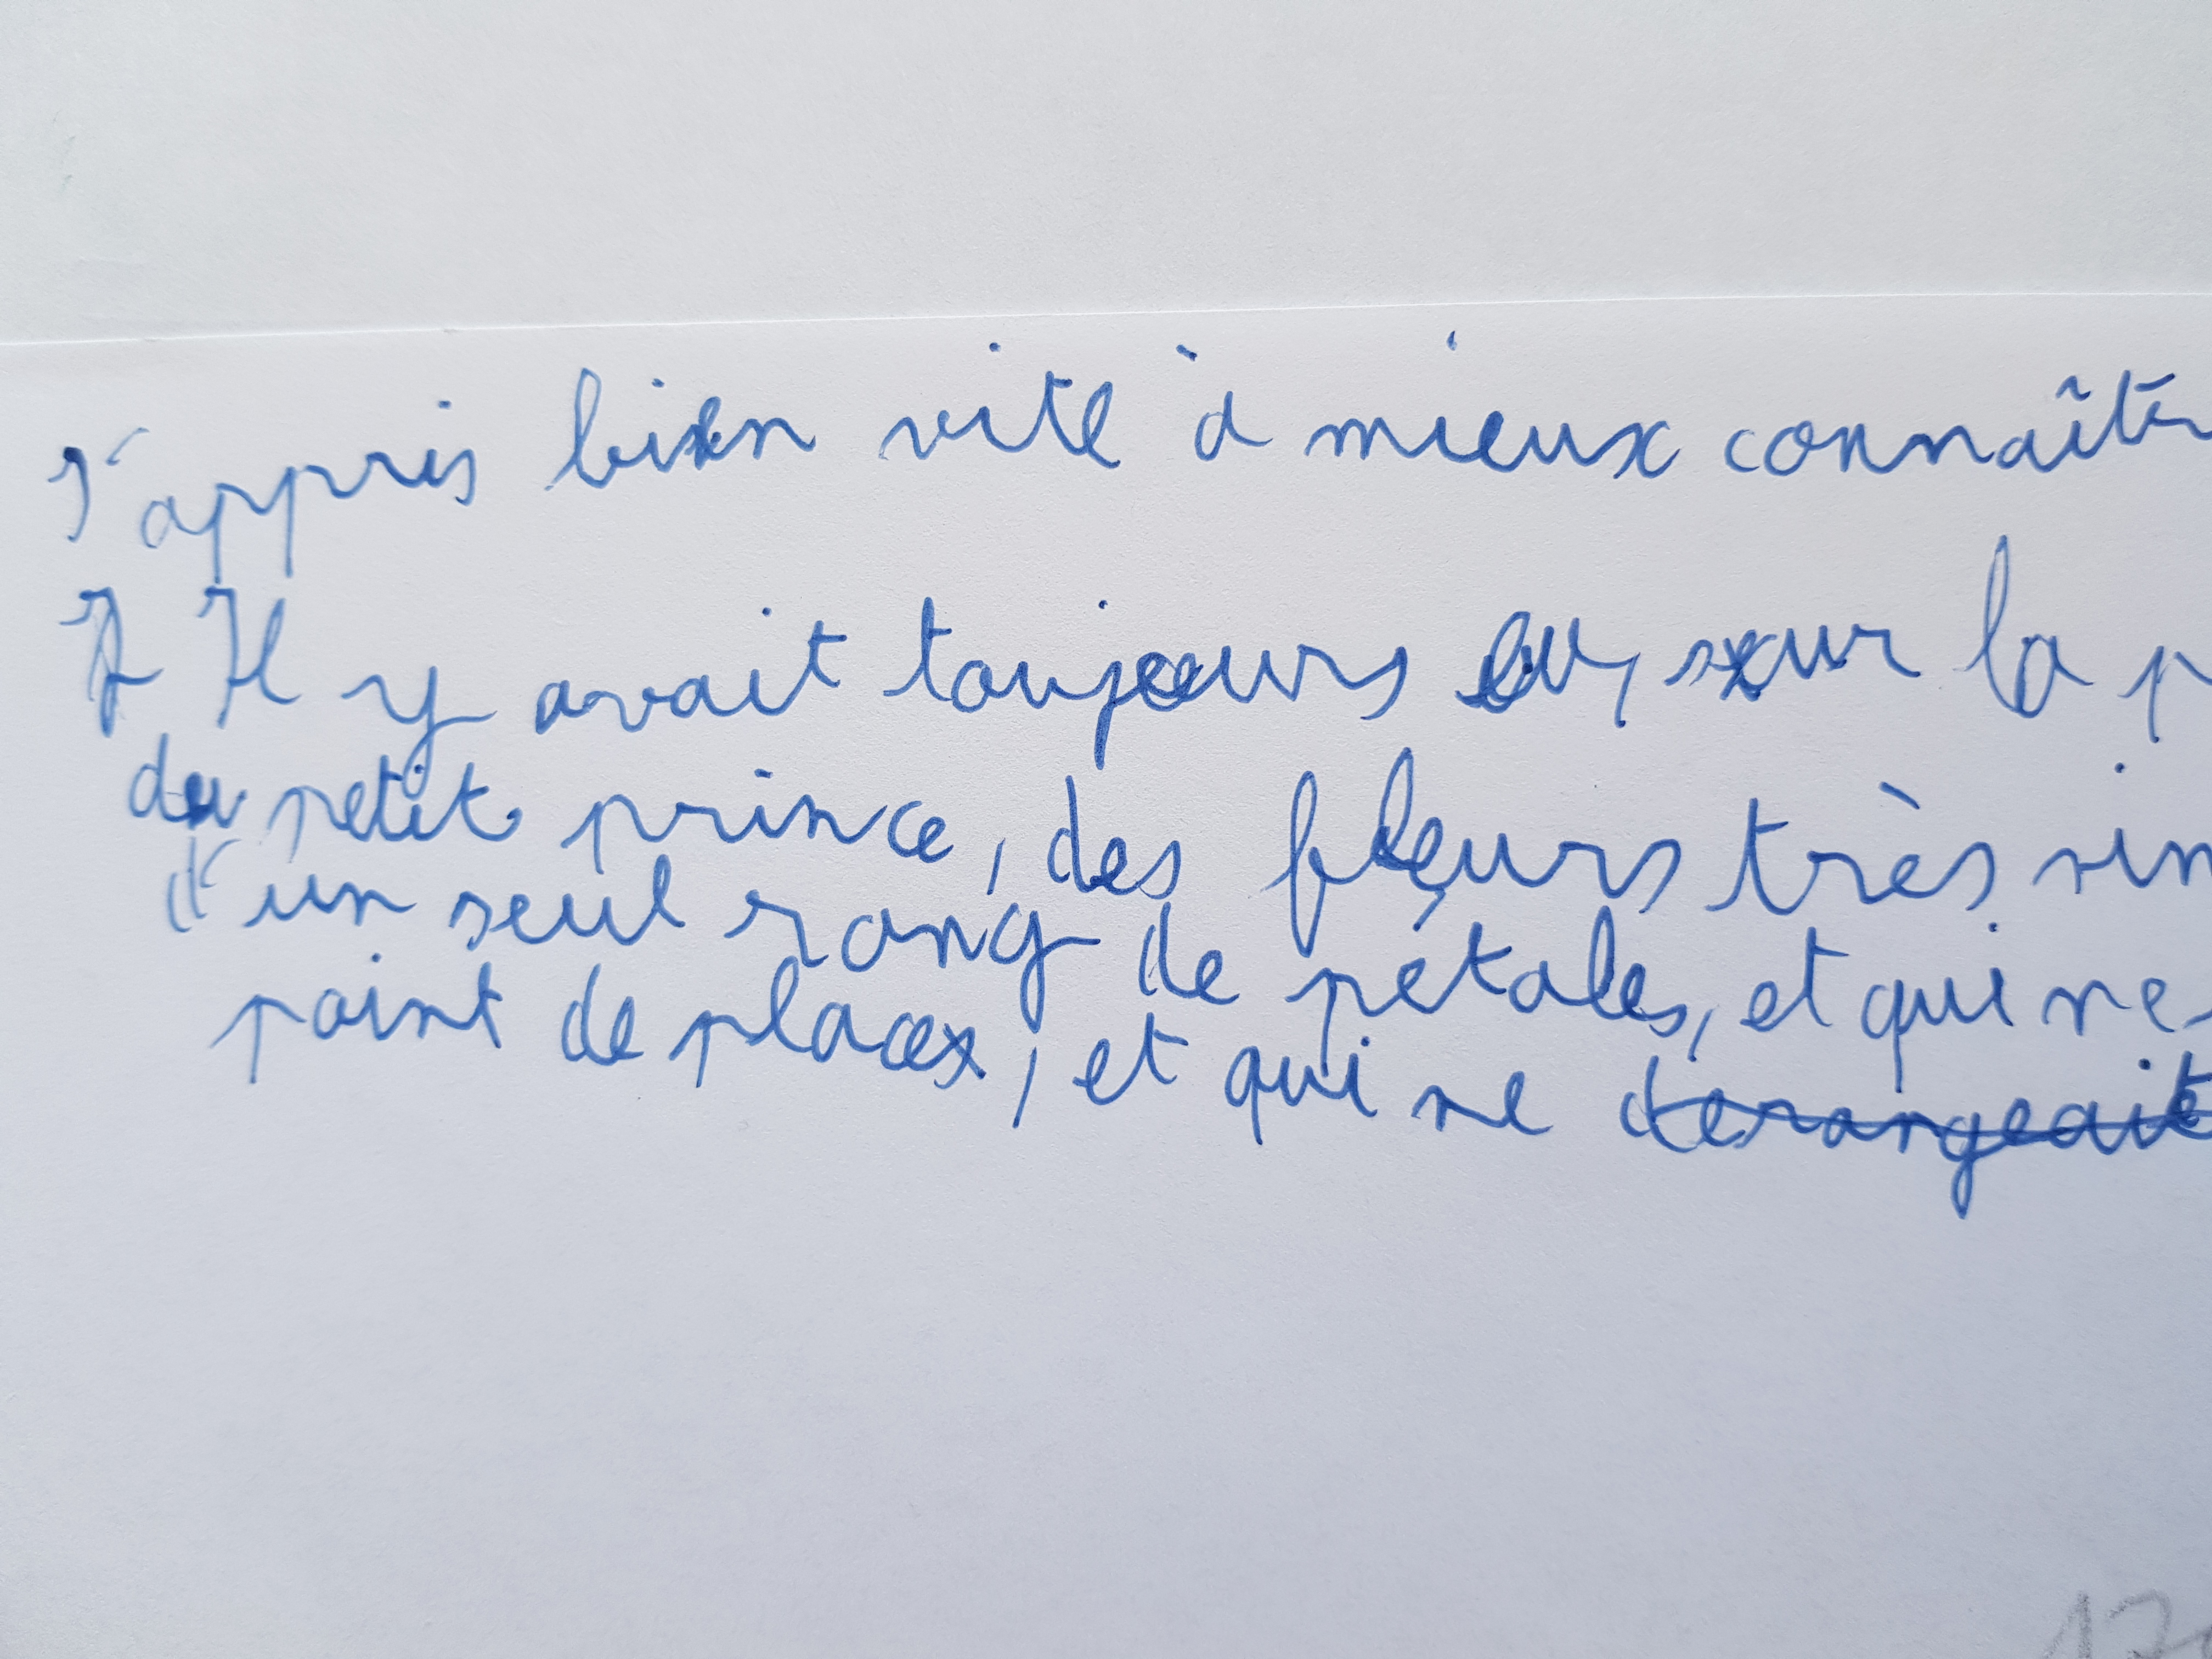 J'appris bien vite à mieux connaîtr
Il y avait toujours eu, sur la p
du petit prince, des fleurs très sim
d'un seul rang de pétales, et qui ne
point de place, et qui ne derangeait
17